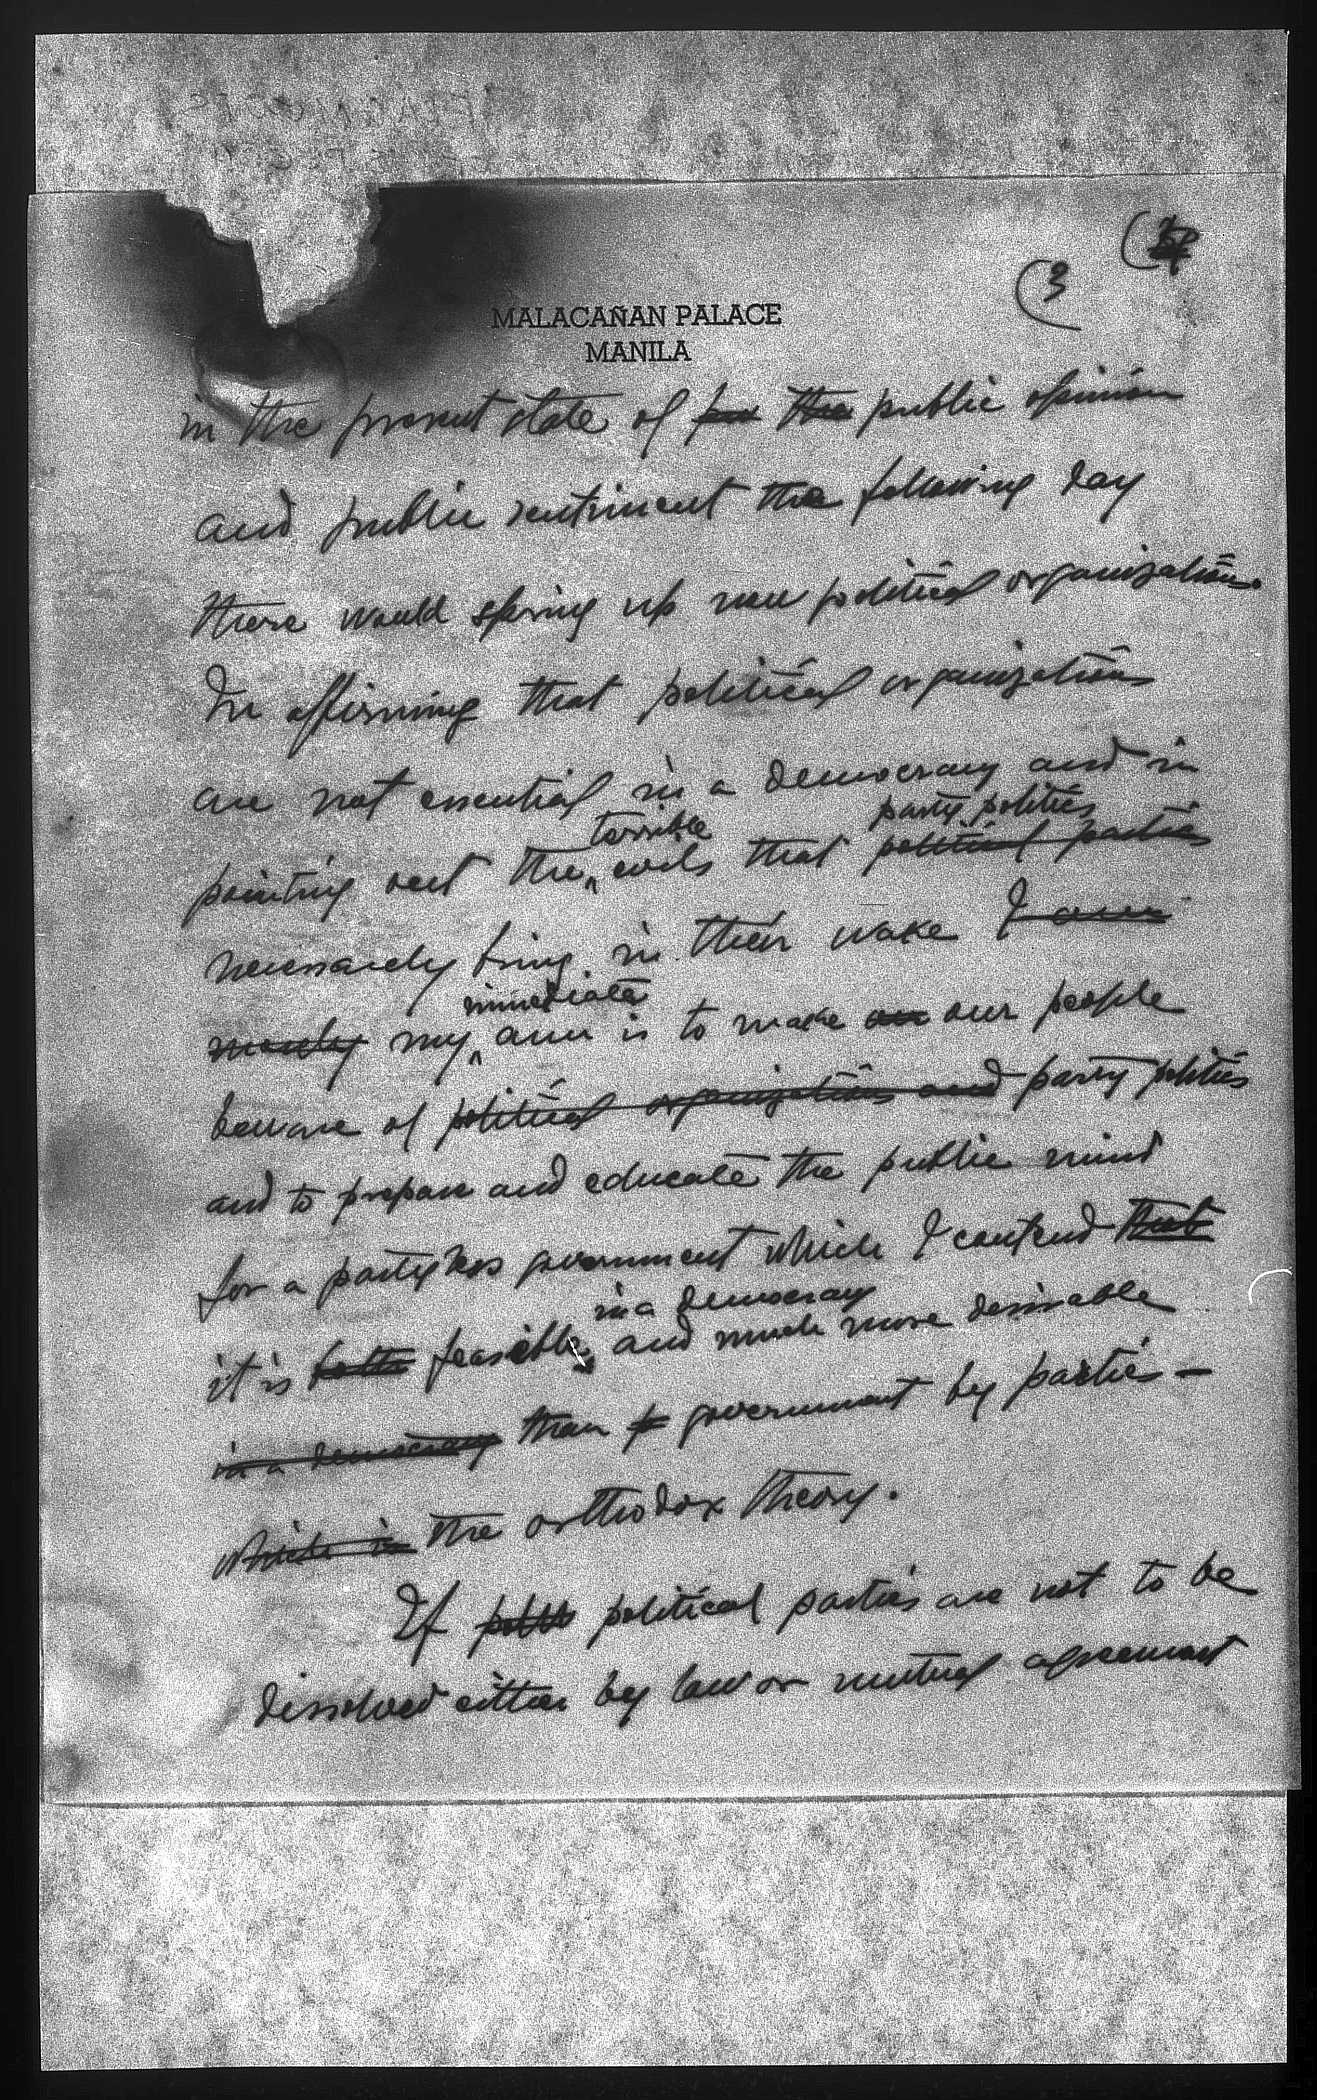 (3
MALACAÑAN PALACE
MANILA
in the present state of the public opinion
and public sentiment the following day
there would spring up new political organizations.
In affirming that political organizations
are not essential in a democracy and in
terrible party politics
pointing out the evils that political parties
necessarily bring in their wake I am
immediate
merely my aim is to make our people
beware of political organizations and party politics
and to prepare and educate the public mind
for a partyless government which I contend that
in a democracy
it is better feasible, and much more desirable
in a democracy than government by parties –
which is the orthodox theory.
If political parties are not to be
dissolved either by law or mutual agreement